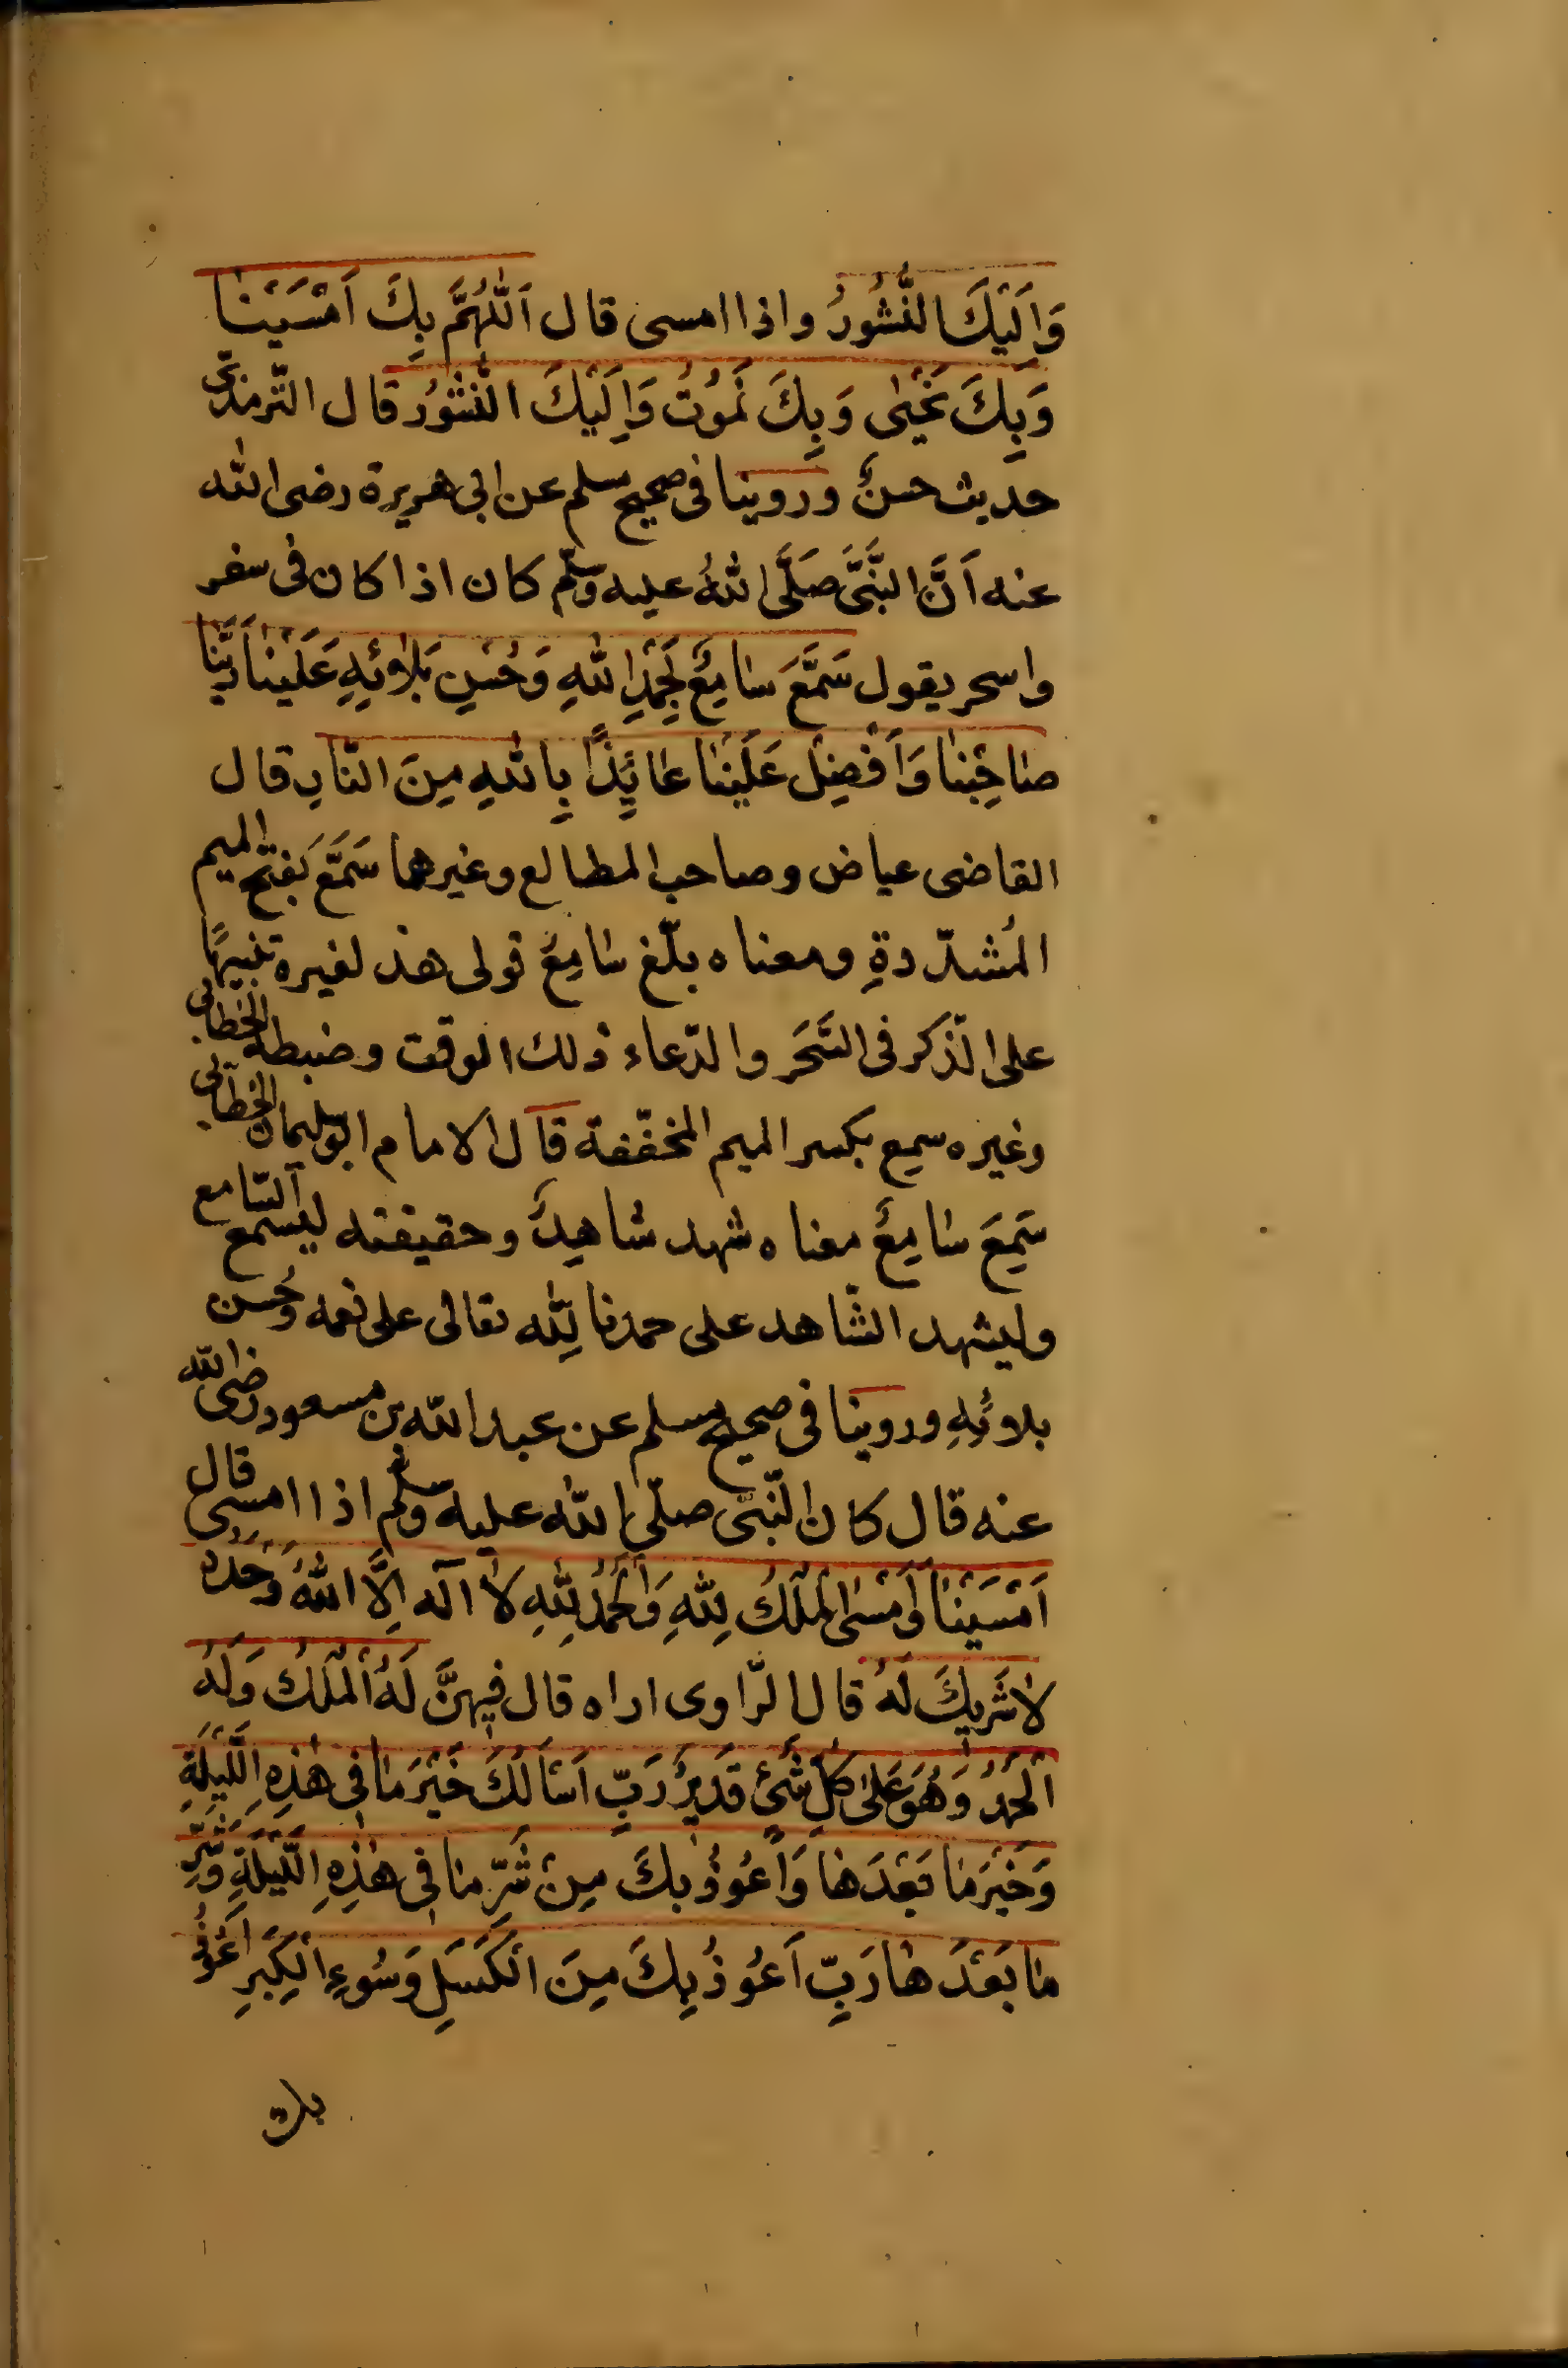 وَاِلَيْكَ النُّشُورُ واذا امسى قال اَللّٰهُمَّ بِكَ اَمْسَيْنا
وَبِكَ نَحْيٰى وَبِكَ نَمُوْتُ وَاِلَيْكَ النُّشُوْرُ قال التّرمذىّ
حديث حسنٌ وروينا فى صحيح مسلم عن ابى هريرة رضى الله
عنه اَنَّ النَّبَّىَ صَلَّى اللهُ عليه وسلّم كان اذا كان فى سفر
واسحر يقول سَمَّعَ سٰامِعٌ بِحَمْدِ اللهِ وَحُسْنِ بَلٰائِهِ عَلَيْنٰا رَبَّنٰا
صٰاحِبْنٰا وَاَفْضِلْ عَلَيْنٰا عٰائِذًا بِاللهِ مِنَ النّارِ قال
القاضى عياض وصاحب المطالع وغيرهما سَمَّعَ بفتح الميم
المُشدّدةِ ومعناه بلّغ سٰامِعٌ قولى هذ لغيره تنبيهًا
على الذّكر فى السَّحَر والدّعاء ذلك الوقت وضبطه الخطابى
وغيره سمِع بكسر الميم المخفّفة قال الامام ابو سليمان الخطّابى
سَمِعَ سٰامِعٌ معناه شهد شاهِدٌ وحقيقته ليسمع السّامع
وليشهد الشّاهد على حمدنا لِلّٰه تعالى على نعمه وحُسن
بلائِهِ وروينا فى صحيح مسلم عن عبد الله بن مسعود رضى الله
عنه قال كان النّبىّ صلّى الله عليه وسلّم اذا امسى قال
اَمْسَيْنٰا وَاَمْسٰى الْمُلْكُ لِلّٰهِ وَالْحَمْدُ لِلّٰهِ لٰا اله اِلَّا اللهُ وَحْدَهُ
لٰا شَرِيكَ لَهُ قال الرّاوى اراه قال فيهِنَّ لَهُ الْمُلْكُ وَلَهُ
الْحَمْدُ وَهُوَ عَلٰى كُلِّ شَىْءٍ قَدِيرٌ رَبِّ اَسْاَلُكَ خَيْرَ مٰا فى هٰذِهِ اللَّيْلَةِ
وَخَيْرَ مٰا بَعْدَهٰا وَاَعُوْذُ بِكَ مِنْ شَرِّ مٰا فى هٰذِهِ اللَّيْلَةِ وَشَرِّ
مٰا بَعْدَ هٰا رَبِّ اَعُوذُ بِكَ مِنَ الْكَسَلِ وَسُوءِ الْكِبَرِ اَعُوْذُ
بك